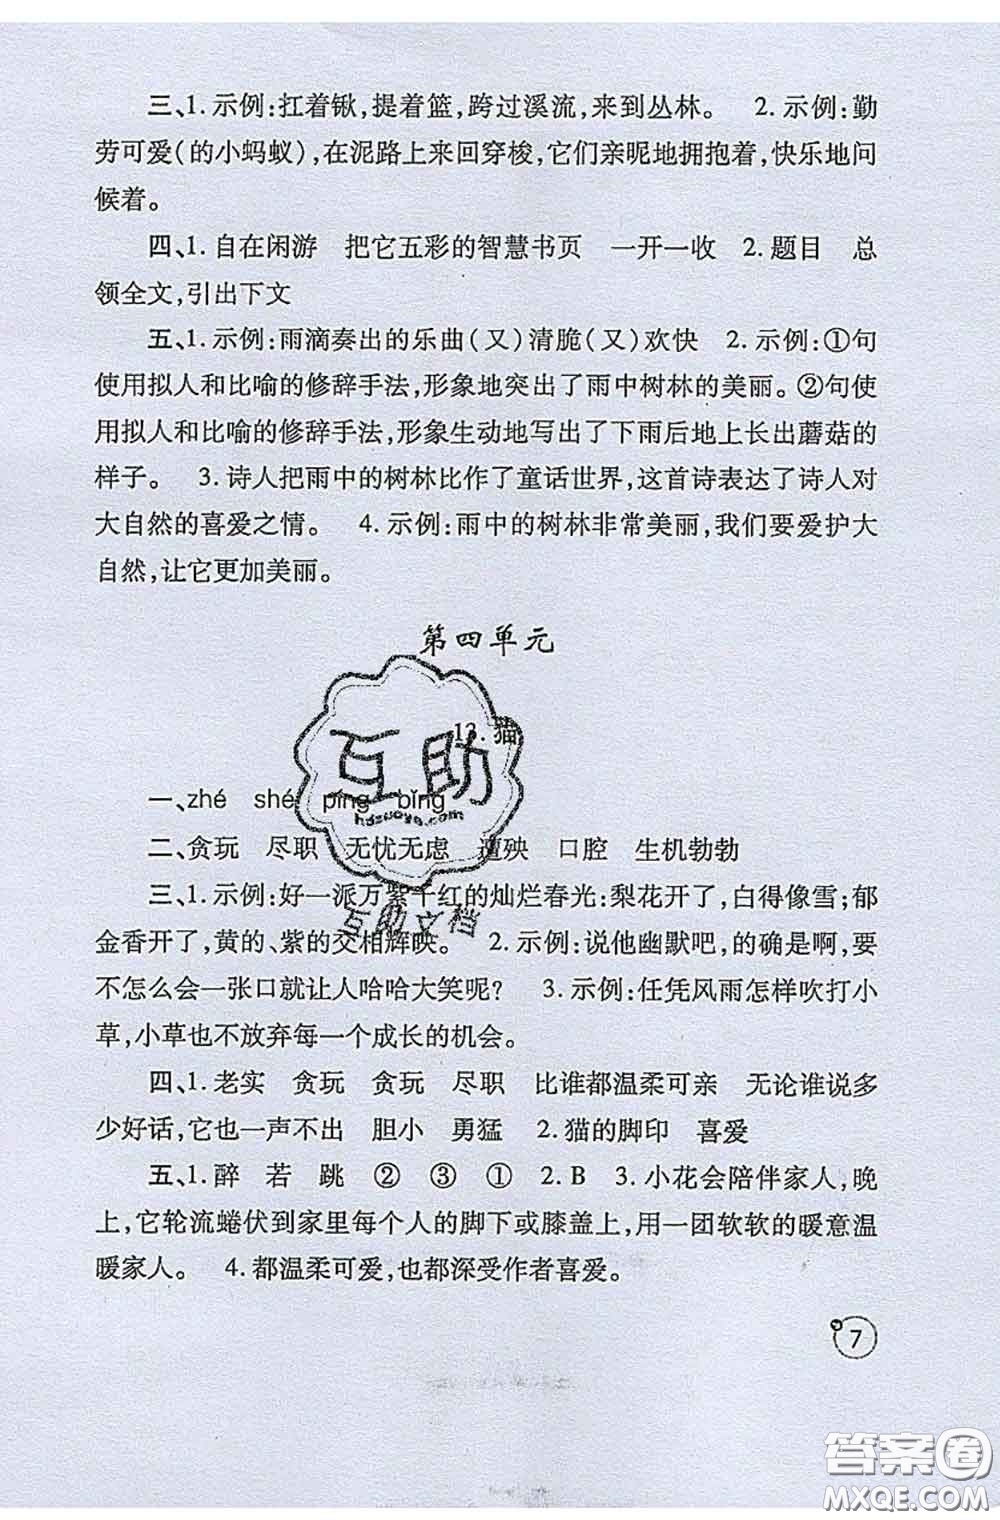 三、1. 示例:扛着锹,提着篮,跨过溪流,来到丛林。　2. 示例:勤
劳可爱(的小蚂蚁),在泥路上来回穿梭,它们亲昵地拥抱着,快乐地问
候着。
四、1. 自在闲游　把它五彩的智慧书页　一开一收　2. 题目　总
领全文,引出下文
五、1. 示例:雨滴奏出的乐曲(又)清脆(又)欢快　2. 示例:①句
使用拟人和比喻的修辞手法,形象地突出了雨中树林的美丽。②句使
用拟人和比喻的修辞手法,形象生动地写出了下雨后地上长出蘑菇的
样子。　3. 诗人把雨中的树林比作了童话世界,这首诗表达了诗人对
大自然的喜爱之情。　4. 示例:雨中的树林非常美丽,我们要爱护大
自然,让它更加美丽。
第四单元
13. 猫
互助
hdzuoye.com
互助文档
一、zhé　shé　píng　bǐng
二、贪玩　尽职　无忧无虑　遭殃　口腔　生机勃勃
三、1. 示例:好一派万紫千红的灿烂春光:梨花开了,白得像雪;郁
金香开了,黄的、紫的交相辉映。　2. 示例:说他幽默吧,的确是啊,要
不怎么会一张口就让人哈哈大笑呢?　3. 示例:任凭风雨怎样吹打小
草,小草也不放弃每一个成长的机会。
四、1. 老实　贪玩　贪玩　尽职　比谁都温柔可亲　无论谁说多
少好话,它也一声不出　胆小　勇猛　2. 猫的脚印　喜爱
五、1. 醉　若　跳　②　③　①　2. B　3. 小花会陪伴家人,晚
上,它轮流蜷伏到家里每个人的脚下或膝盖上,用一团软软的暖意温
暖家人。　4. 都温柔可爱,也都深受作者喜爱。
7
答案卷
MXQE.COM